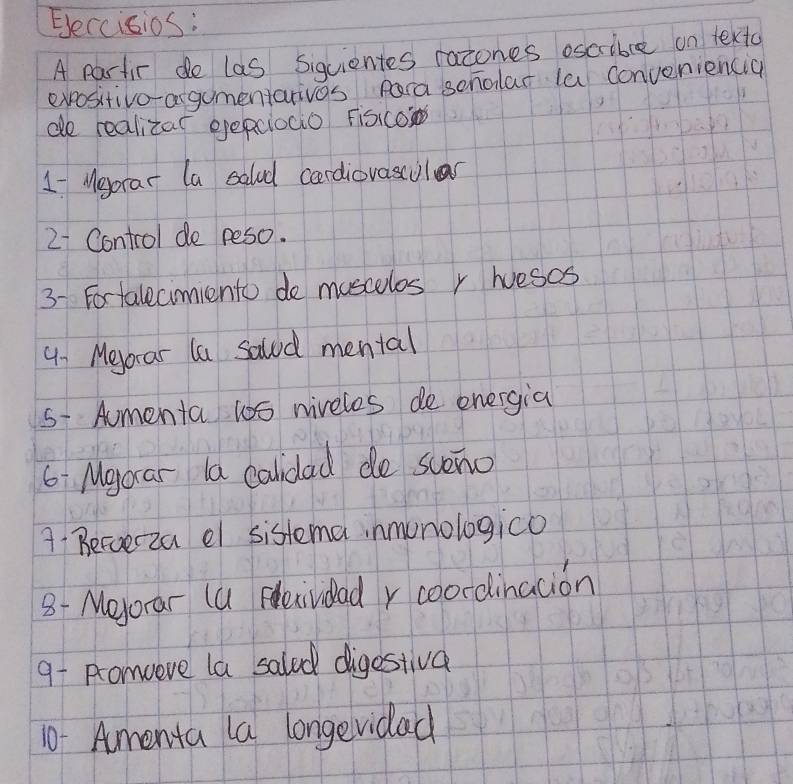 Ejercisios:
A partir de las siguientes razones escribre un texto
expositivo-argumentativos para señalar la conveniencia
de realizar ejepciocio Fisico
1- Mejorar la salud cardiovascular
2- Control de peso.
3- Fortalecimiento de musculos y huesos
4- Mejorar la salud mental
5- Aumenta los niveles de energia
6- Mejorar la calidad de sueño
7- Refuerza el sistema inmunologico
8- Mejorar la flexividad y coordinación
9- Promueve la salud digestiva
10- Amenta la longevidad